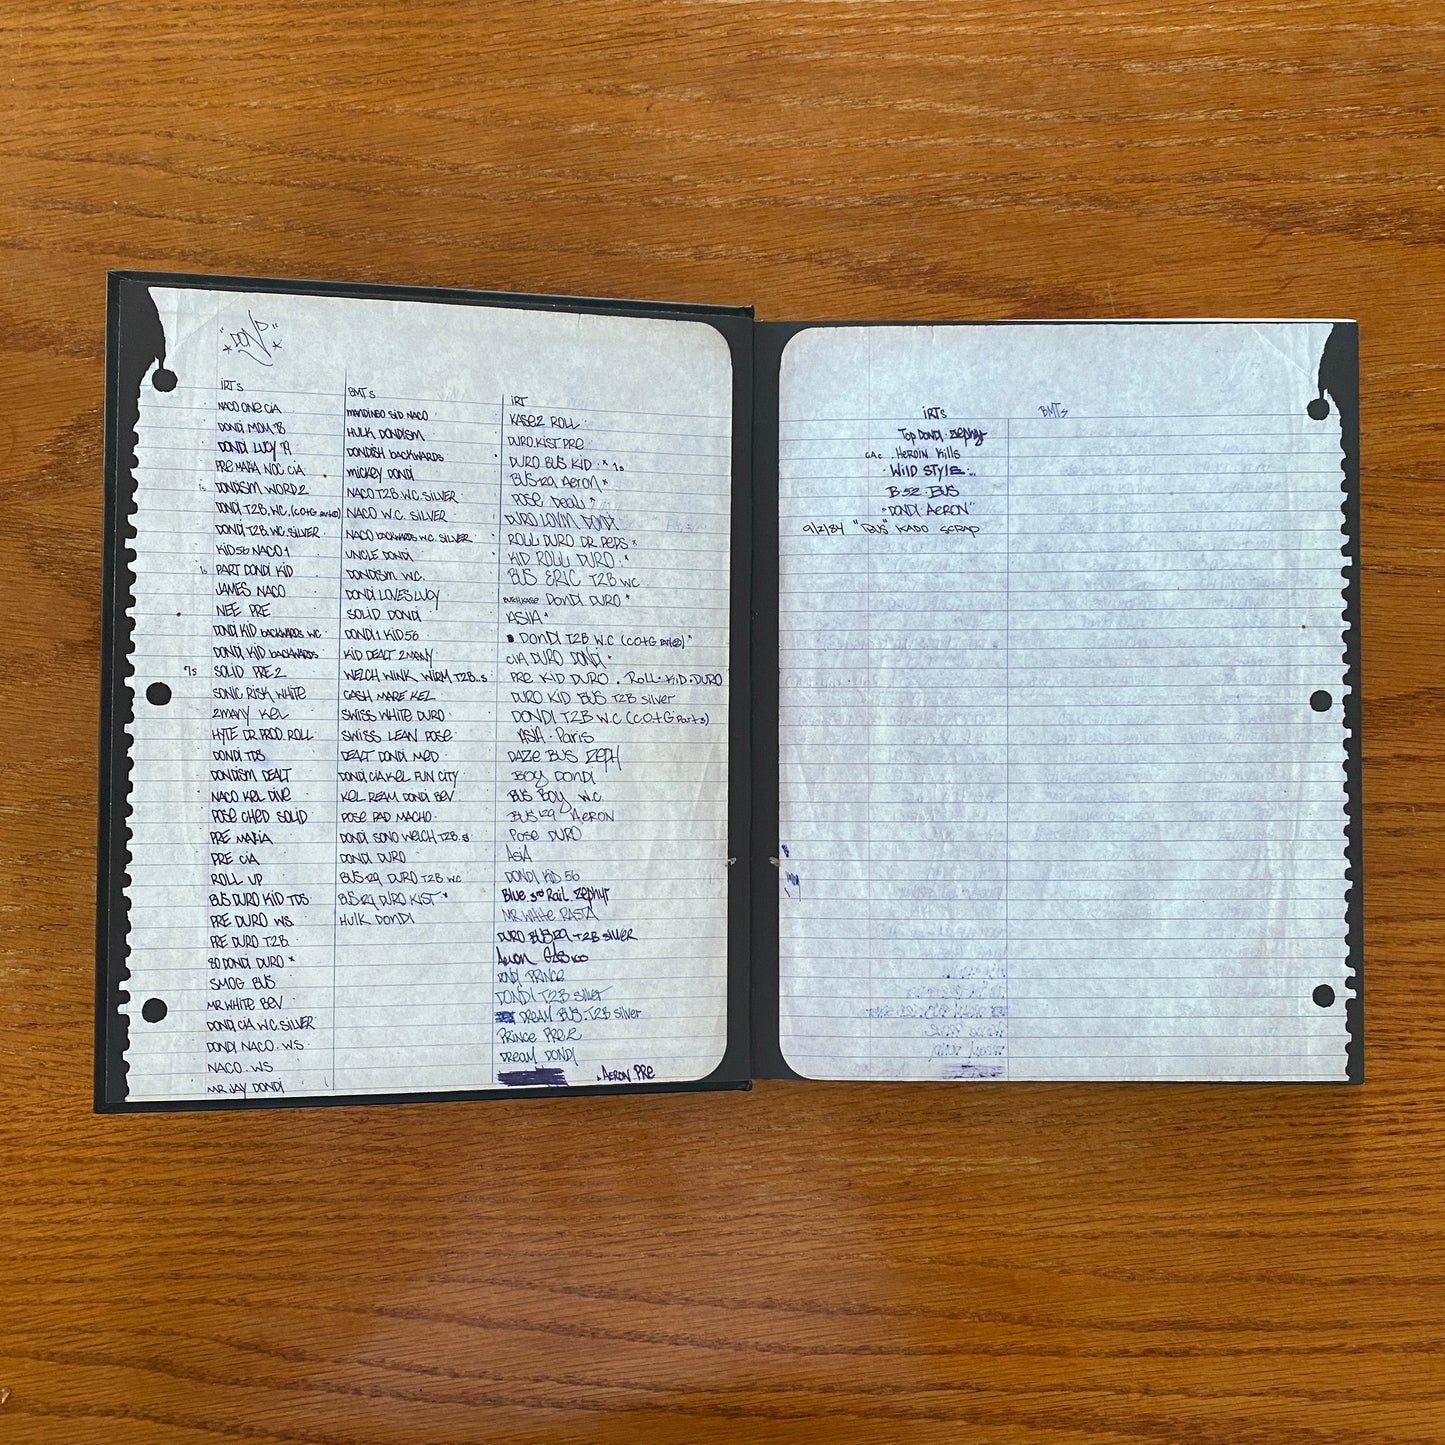 "DONDI"
IRTs
NACO ONE CIA
DONDI MOM '78
DONDI LUCY 79
PRE MAFIA NOC CIA
1s DONDISM WORD 2
DONDI T2B. W.C. (CO+G parted)
DONDI T2B. WC. SILVER
KID 56 NACO 1
1s PART DONDI KID
JAMES NACO
NEE PRE
DONDI KID backwards WC
DONDI KID backwards
7s SOLID PRE 2
SONIC RISK WHITE
2MANY KEL
HYTE DR. PROD. ROLL
DONDI TDS
DONDISM DEALT
NACO KEL DIVE
POSE CHED SOLID
PRE MAFIA
PRE CIA
ROLL UP
BUS DURO KID TDS
PRE DURO W.S.
PRE DURO T2B.
80 DONDI DURO *
SMOG BUS
MR WHITE BEV
DONDI CIA W.C. SILVER
DONDI NACO. W.S.
NACO. W.S
MR JAY DONDI
BMTs
MANDINGO SID NACO
HULK DONDISM
DONDISH BACKWARDS
MICKEY DONDI
NACO T2B. W.C. SILVER
NACO W.C. SILVER
NACO backwards W.C. SILVER
UNCLE DONDI
DONDISM WC.
DONDI LOVES LUCY
SOLID DONDI
DONDI 1 KID 56
KID DEALT 2MANY
WELCH WINK WIRM T2B..s
CASH MARE KEL
SWISS WHITE DURO
SWISS LEAN POSE
DEALT DONDI MED
DONDI CIA KEL FUN CITY
KEL REAM DONDI BEV
POSE PAD MACHO.
DONDI SONO WELCH T2B.s
DONDI DURO
BUS 129 DURO T2B WC
BUS 129 DURO KIST *
HULK DONDI
IRT
KASE 2 ROLL
DURO. KIST PRE
DURO BUS KID * 1s
BUS 129 AERON *
POSE DEAL *
DURO LOVIN DONDI
ROLL DURO DR. PEPS *
KID ROLL DURO *
BUS ERIC T2B WC
DONDI DURO *
ASIA *
DONDI T2B W.C (CO+G parted) *
CIA DURO DONDI *
PRE KID DURO . ROLL. KID. DURO
DURO KID BUS T2B silver
DONDI T2B W.C (CO+G Parts)
ASIA. Paris
DAZE BUS ZEPH
BOY DONDI
BUS BOY W.C
BUS 129 AERON
POSE DURO
ASIA
DONDI KID 56
Blue 3rd Rail. Zephyr
MR WHITE RASTA
DURO BUS 129 T2B silver
Aeron
DONDI PRINCE
DONDI T2B silver
DREAM BUS. T2B silver
PRINCE PRE 2
DREAM DONDI
. AERON PRE
IRTs
Top DONDI. Zephyr
CAC HEROIN Kills
WILD STYLE...
B.52. BUS
"DONDI AERON"
9/2/84 "BUS" KADO SCRAP
BMTs